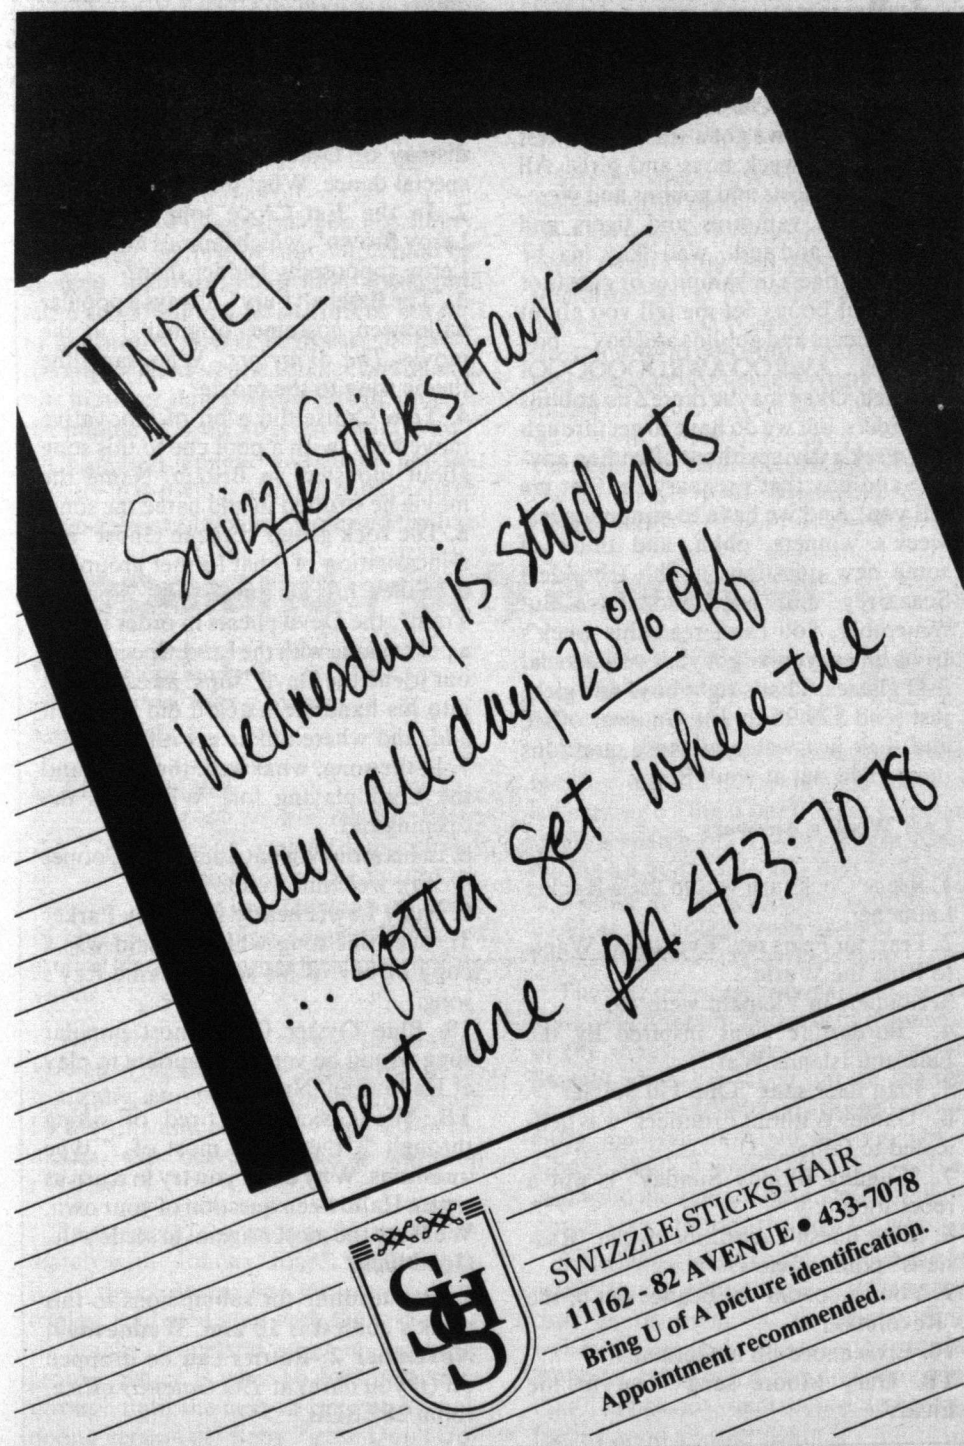 NOTE
Swizzle Sticks Hair —
Wednesday is students
day, all day 20% off
... gotta get where the
best are ph. 433·7078
SHS
SWIZZLE STICKS HAIR
11162 - 82 AVENUE • 433-7078
Bring U of A picture identification.
Appointment recommended.